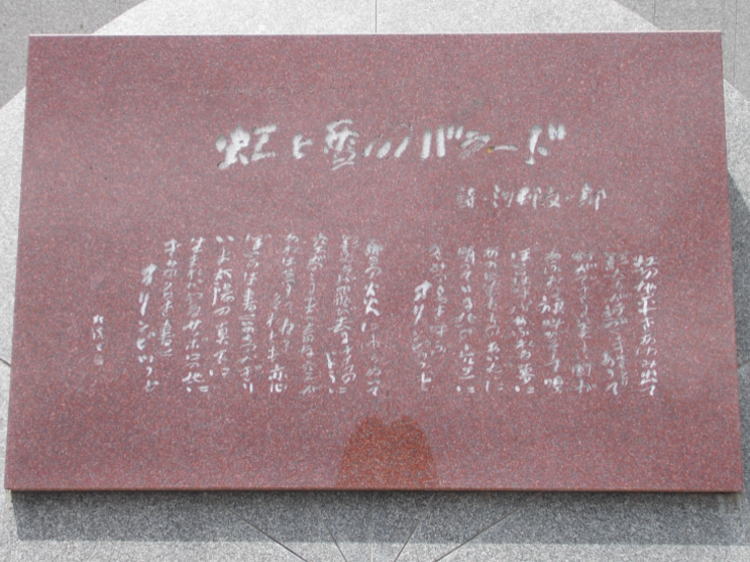 虹と雪のバラード
詩・河邨文一郎
虹の地平をあゆみ出て
影たちが近づく手をとりあって
町ができる美しい町が
あふれる旗叫びそして唄
ぼくらは呼ぶあふれる夢に
あの星たちのあいだに
眠っている北の空に
きみの名を呼ぶ
オリンピックと
雪の炎にゆらめいて
影たちが飛び去るナイフの
ように
空がのこるまっ青な空が
あれは夢?力?それとも恋
ぼくらは書くいのちのかぎり
いま太陽の真下に
生まれかわるサッポロの地に
きみの名を書く
オリンピックと